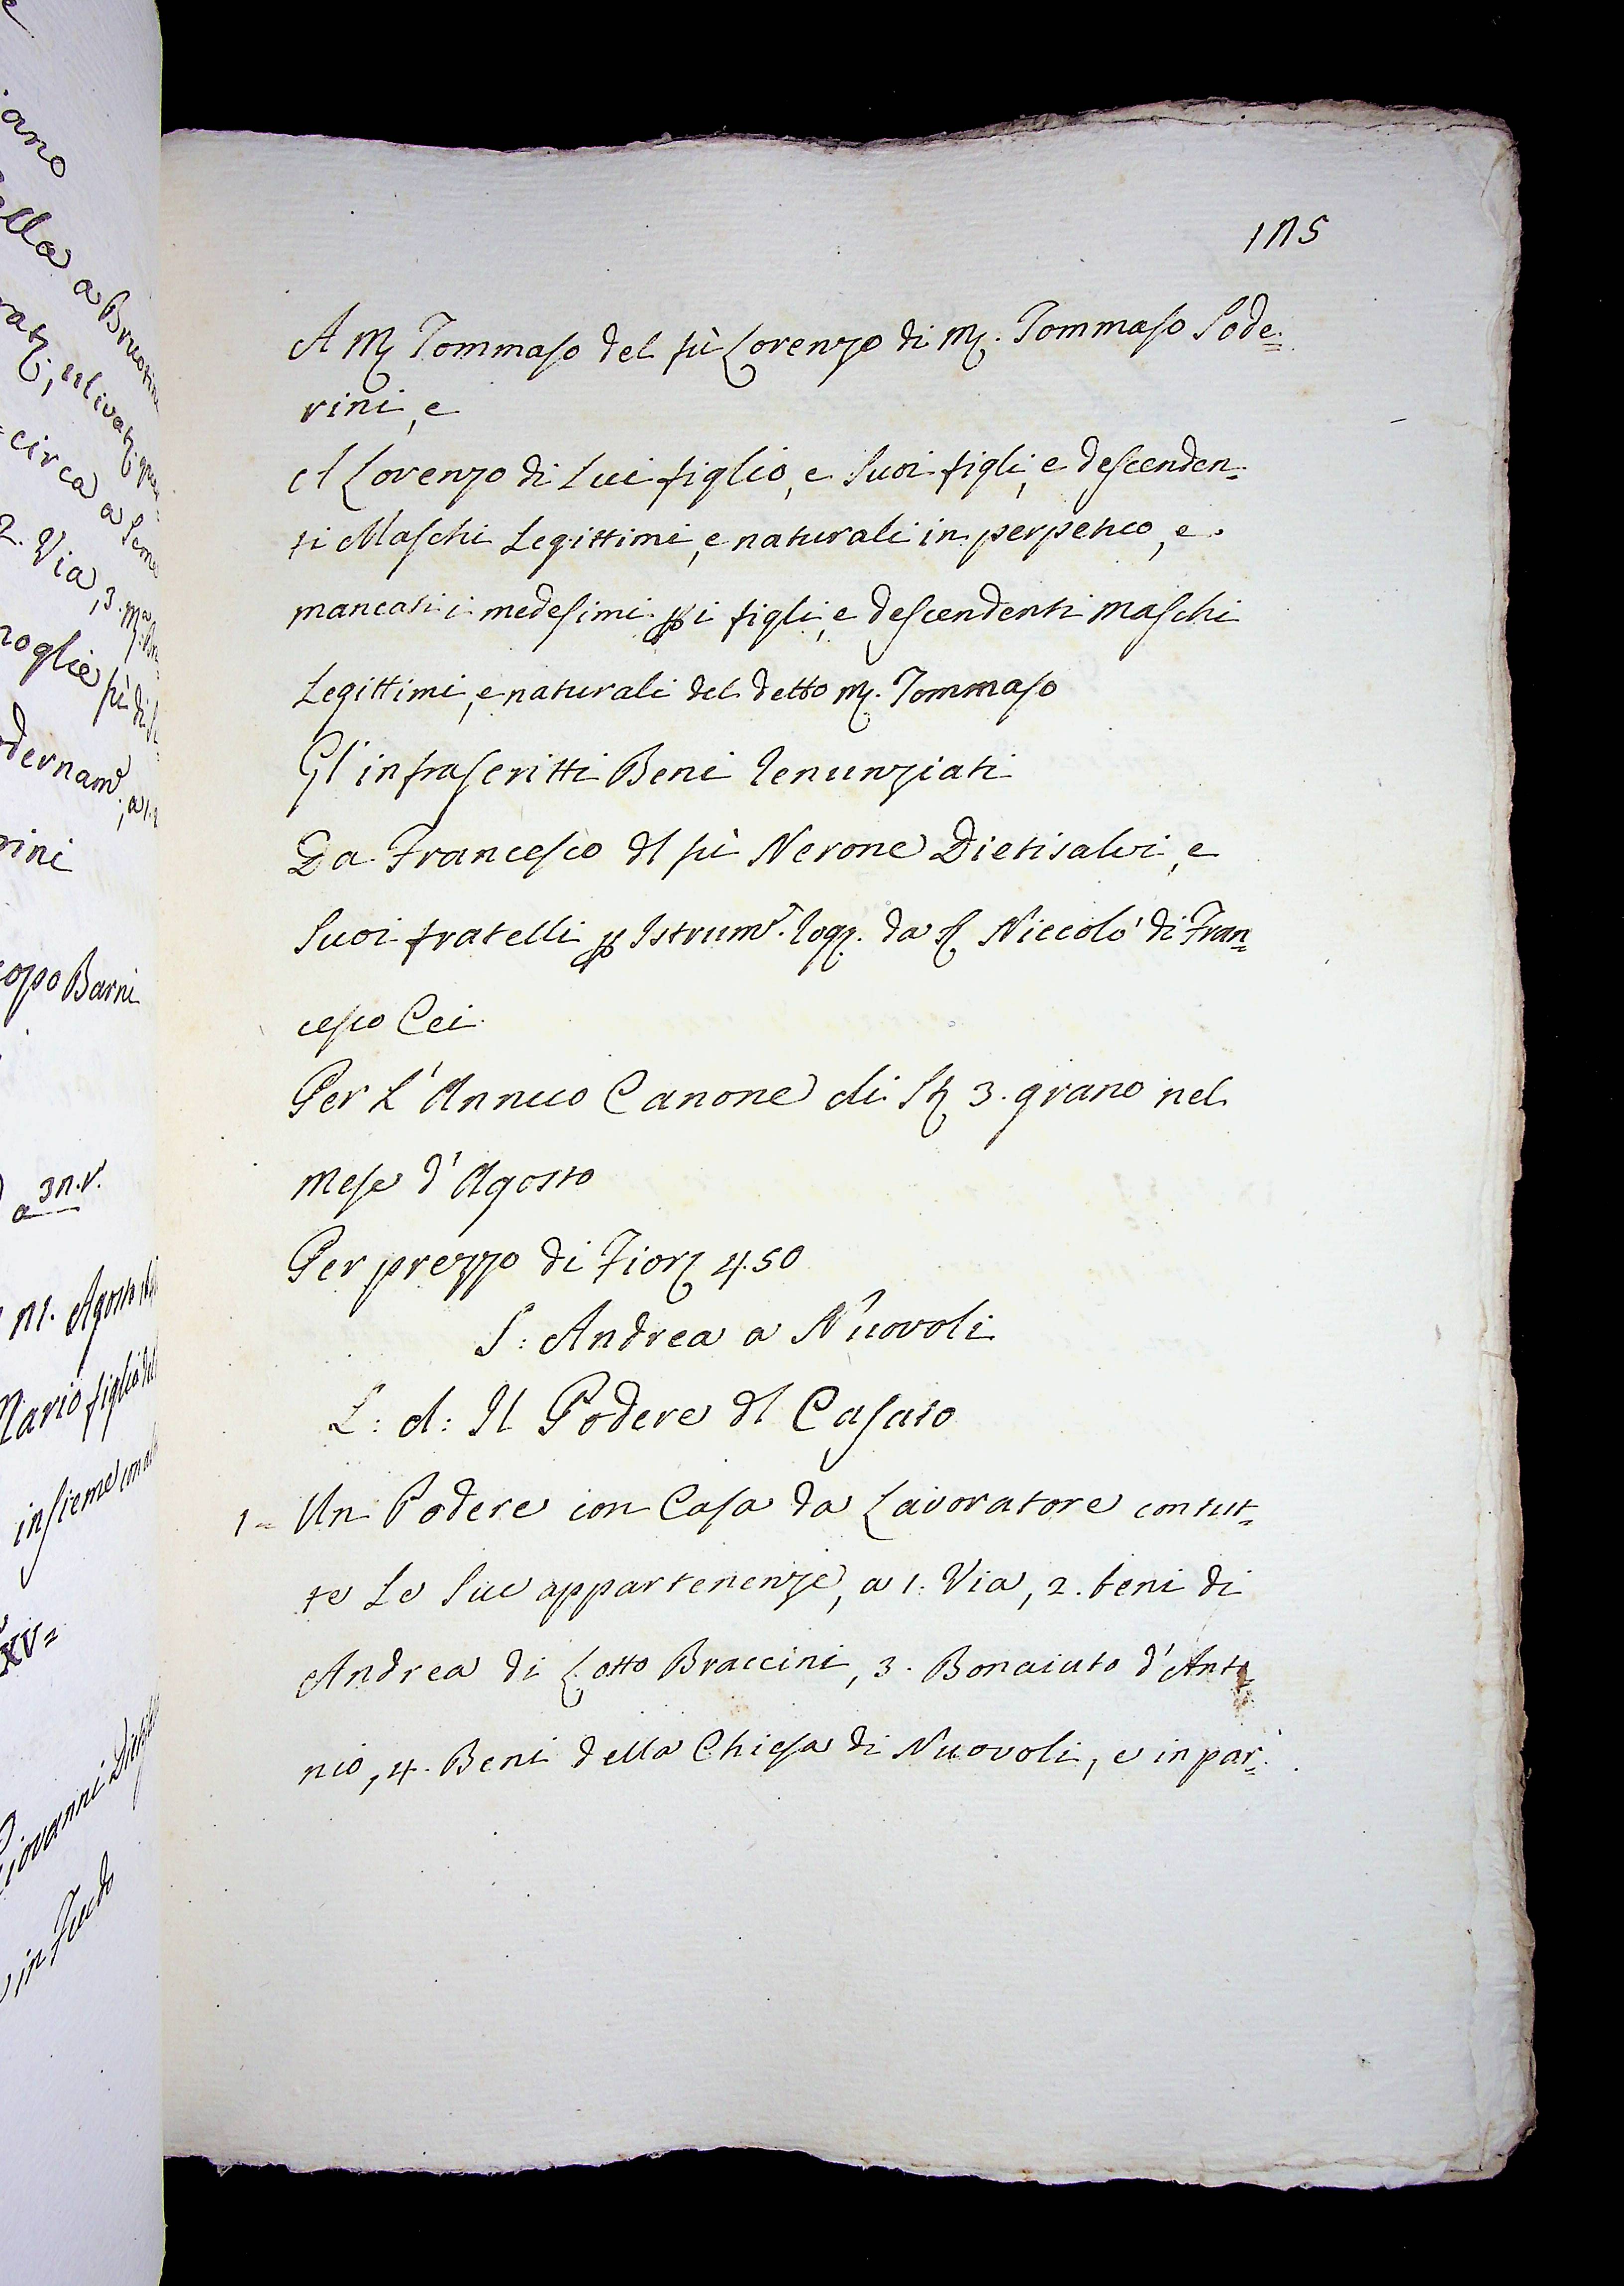 175
A M. Tommaso del fù Lorenzo di M. Tommaso Sode=
rini, e
A Lorenzo di Lui figlio, e Suoi figli, e descenden=
ti Maschi Legittimi, e naturali in perpetuo, e
mancati i medesimi p i figli, e descendenti maschi
Legittimi, e naturali del detto M. Tommaso
Gl'infrascritti Beni Renunziati
Da Francesco dl fù Nerone Dietisalvi, e
Suoi fratelli p Istrum.to Rog. da S. Niccolò di Fran=
cesco Cei
Per L'Annuo Canone di St 3. grano nel
Mese d'Agosto
Per prezzo di Fior 450
S: Andrea a Nuovoli
L: d: Il Podere dl Casato
1= Un Podere con Casa da Lavoratore con tut=
te Le Sue appartenenze, a 1. Via, 2. beni di
Andrea di Lotto Braccini, 3. Bonaiuto d'Anto
nio, 4. Beni della Chiesa di Nuovoli, e in par=